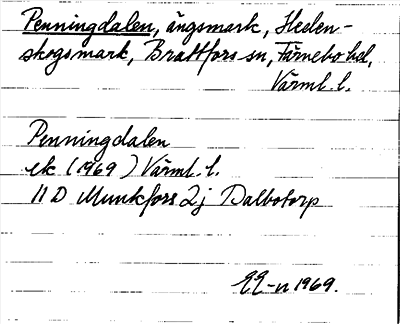 Penningdalen, ängsmark, Heden-
skogsmark, Brattfors sn, Färnebo hd,
Värml. l.
Penningdalen
ek (1969) Värml. l.
11 D Munkfors 2j Dalbotorp
EE-n 1969.